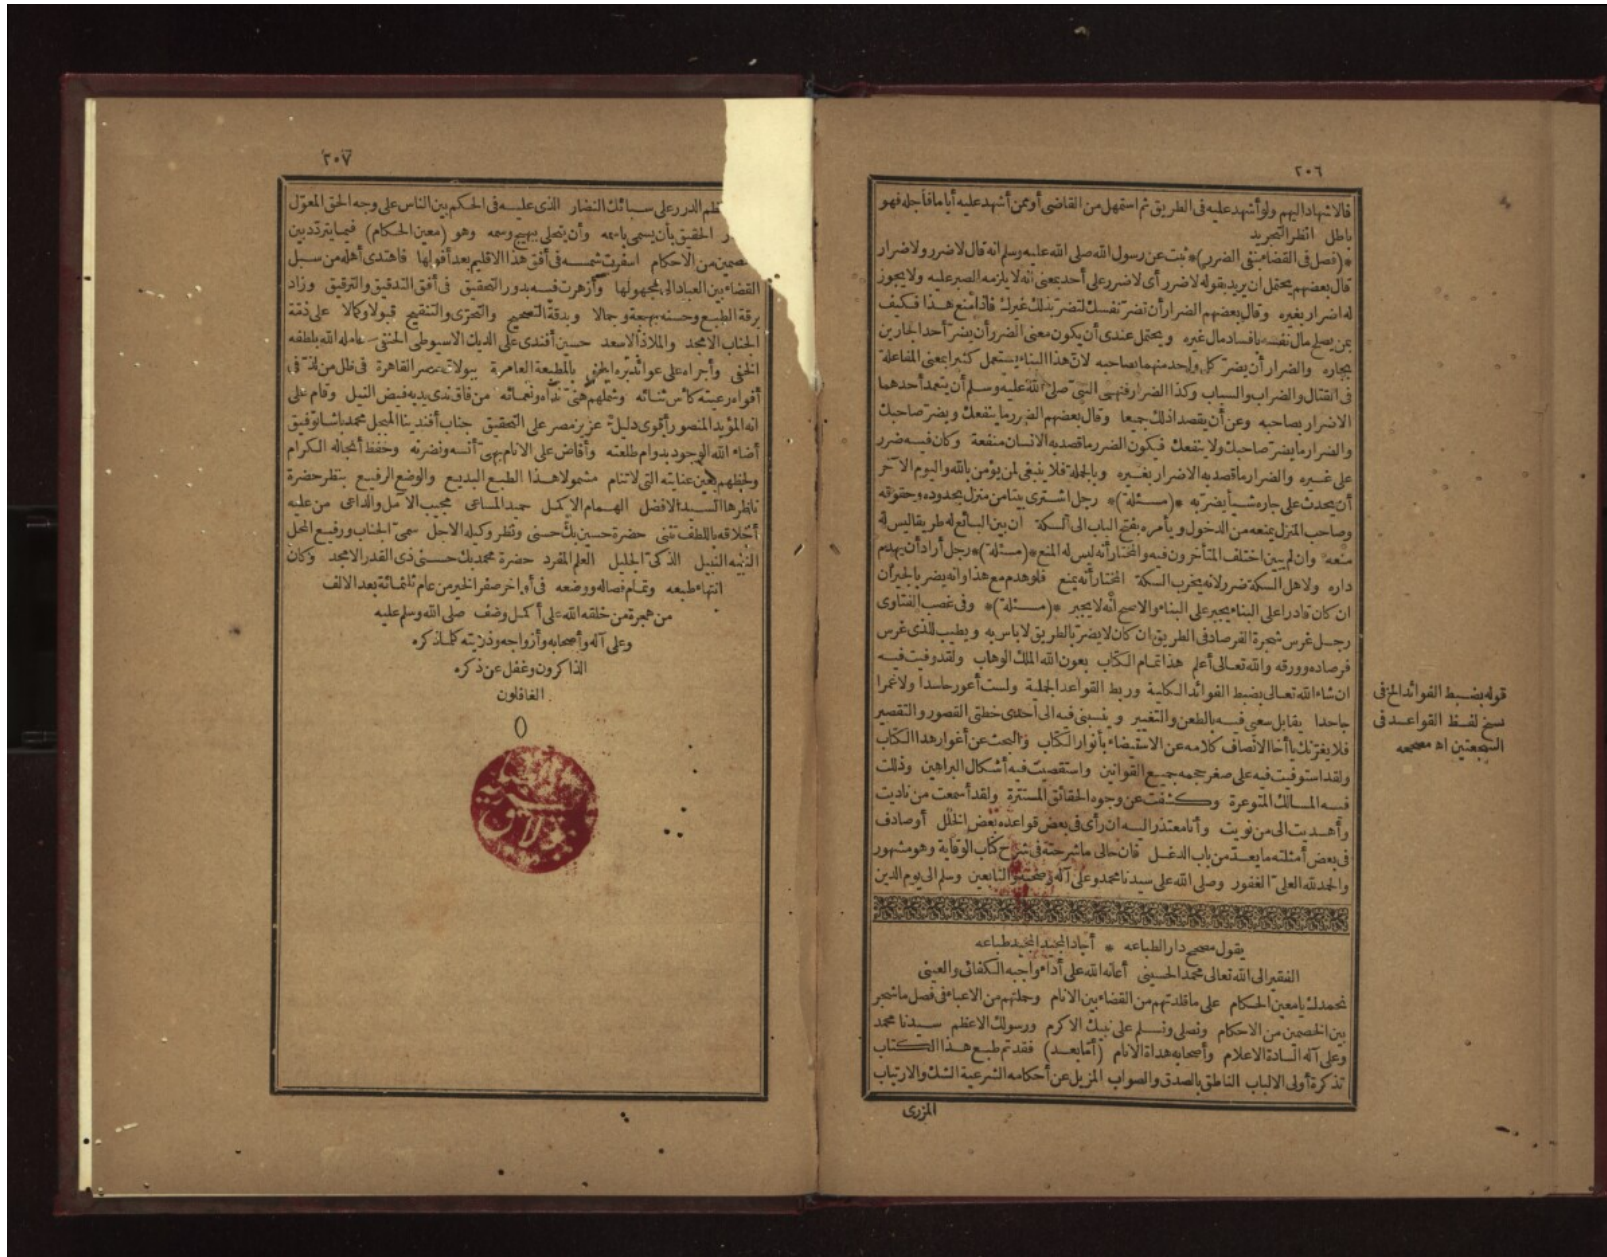 ٢٠٦
فالاشهاد اليهم ولو أشهد عليه فى الطريق ثم استمهل من القاضى أو ممن أشهد عليه أياما فأجله فهو
باطل انظر التجريد
*(فصل فى القضاء بنفى الضرر)* ثبت عن رسول الله صلى الله عليه وسلم انه قال لاضرر ولاضرار
قال بعضهم يحتمل ان يريد بقوله لاضرر أى لاضرر على أحد بمعنى أنه لا يلزمه الصبر عليه ولا يجوز
له اضرار بغيره وقال بعضهم الضرار أن تضر نفسك لتضر بذلك غيرك فاذا منع هذا فكيف
بمن يصلح مال نفسه بافساد مال غيره ويحتمل عندى أن يكون معنى الضرر أن يضر أحد الجارين
بجاره والضرار أن يضر كل واحد منهما بصاحبه لان هذا البناء يستعمل كثيرا بمعنى المفاعلة
فى القتال والضراب والسباب وكذا الضرار فنهى النبى صلى الله عليه وسلم أن يتعمد أحدهما
الاضرار بصاحبه وعن أن يقصد اذلك جميعا وقال بعضهم الضرر ما ينفعك ويضر صاحبك
والضرار ما يضر صاحبك ولا ينفعك فيكون الضرر ما قصد به الانسان منفعة وكان فيه ضرر
على غيره والضرار ما قصد به الاضرار بغيره وبالجملة فلا ينبغى لمن يؤمن بالله واليوم الآخر
أن يحدث على جاره شيأ يضر به *(مسئلة)* رجل اشترى بيتا من منزل بحدوده وحقوقه
وصاحب المنزل يمنعه من الدخول ويأمره بفتح الباب الى السكة ان بين البائع له طريقا ليس له
منعه وان لم يبين اختلف المتأخرون فيه والمختار أنه ليس له المنع *(مسئلة)* رجل أراد أن يهدم
داره ولاهل السكة ضرر لانه يخرب السكة المختار أنه يمنع فلو هدم مع هذا وانه يضر بالجيران
ان كان قادرا على البناء يجبر على البناء والاصح أنه لا يجبر *(مسئلة)* وفى غصب الفتاوى
رجل غرس شجرة الفرصاد فى الطريق ان كان لا يضر بالطريق لا باس به ويطيب للذى غرس
فرصاده وورقه والله تعالى أعلم هذا تمام الكتاب بعون الله الملك الوهاب ولقد وفيت فيه
ان شاء الله تعالى بضبط الفوائد الكلية وربط القواعد الجلية ولست أعور حاسدا ولا غمرا
جاحدا يقابل سعيى فيه بالطعن والتغيير وينسبنى فيه الى أحدى خطتى القصور والتقصير
فلا يغرنك يا أخا الانصاف كلامه عن الاستيضاء بأنوار الكتاب والبحث عن أغوار هذا الكتاب
ولقد استوفيت فيه على صغر حجمه جميع القوانين واستقصيت فيه أشكال البراهين وذللت
فيه المسالك المتوعرة وكشفت عن وجوه الحقائق المستترة ولقد أسمعت من ناديت
وأهديت الى من نويت وأنا معتذر اليه ان رأى فى بعض قواعده بعض الخلل أو صادف
فى بعض أمثلته ما يعد من باب الدغل فان حالى ما شرحته فى شرح كتاب الوقاية وهو مشهور
والحمد لله العلى الغفور وصلى الله على سيدنا محمد وعلى آله وصحبه والتابعين وسلم الى يوم الدين
قوله بضبط الفوائد الخ فى
نسخ لفظ القواعد فى
السجعتين اه مصححه
يقول مصحح دار الطباعه * أجاد المجيد طباعه
الفقير الى الله تعالى محمد الحسينى أعانه الله على أداء واجبه الكفائى والعينى
نحمدك يا معين الحكام على ما قلدتهم من القضاء بين الانام وحملتهم من الاعباء فى فصل ما شجر
بين الخصمين من الاحكام ونصلى ونسلم على نبيك الاكرم ورسولك الاعظم سيدنا محمد
وعلى آله السادة الاعلام وأصحابه هداة الانام (أما بعد) فقد تم طبع هذا الكتاب
تذكرة أولى الالباب الناطق بالصدق والصواب المزيل عن أحكامه الشرعية الشك والارتياب
المزرى
٢٠٧
ظم الدرر على سبائك النضار الذى عليه فى الحكم بين الناس على وجه الحق المعول
الحقيق بأن يسمى باسمه وأن يتحلى ببهيج وسمه وهو (معين الحكام) فيما يتردد بين
الخصمين من الاحكام اسفرت شمسه فى أفق هذا الاقليم بعد أفولها فاهتدى أهله من سبل
القضاء بين العباد الى مجهولها وأزهرت فيه بدور التحقيق فى أفق التدقيق والترقيق وزاد
برقة الطبع وحسنه بهجة وجمالا وبدقة التصحيح والتحرى والتنقيح قبولا وكمالا على ذمة
الجناب الامجد والملاذ الاسعد حسين أفندى على الديك الاسيوطى الحنفى عامله الله بلطفه
الخفى وأجراه على عوائد بره الحفى بالمطبعة العامرة ببولاق مصر القاهرة فى ظل من لذ فى
أفواه رعيته كأس ثنائه وشملهم هنى نداه ونعمائه من فاق ندى يديه فيض النيل وقام على
انه المؤيد المنصور أقوى دليل عزيز مصر على التحقيق جناب أفندينا المبجل محمد باشا توفيق
أضاء الله الوجود بدوام طلعته وأفاض على الانام بهى أنسه ونضرته وحفظ أنجاله الكرام
ولحظهم بعين عنايته التى لا تنام مشمولا هذا الطبع البديع والوضع الرفيع بنظر حضرة
ناظرها السيد الافضل الهمام الاكمل حميد المساعى مجيب الآمل والداعى من عليه
أخلاقه باللطف تثنى حضرة حسين بك حسنى ونظر وكيله الاجل سمى الجناب ورفيع المحل
النبيه النبيل الذكى الجليل العلم المفرد حضرة محمد بك حسنى ذى القدر الامجد وكان
انتهاء طبعه وتمام فصاله ووضعه فى أواخر صفر الخير من عام ثلثمائة بعد الالف
من هجرة من خلقه الله على أكمل وصف صلى الله وسلم عليه
وعلى آله وأصحابه وأزواجه وذريته كلما ذكره
الذاكرون وغفل عن ذكره
الغافلون
بولاق